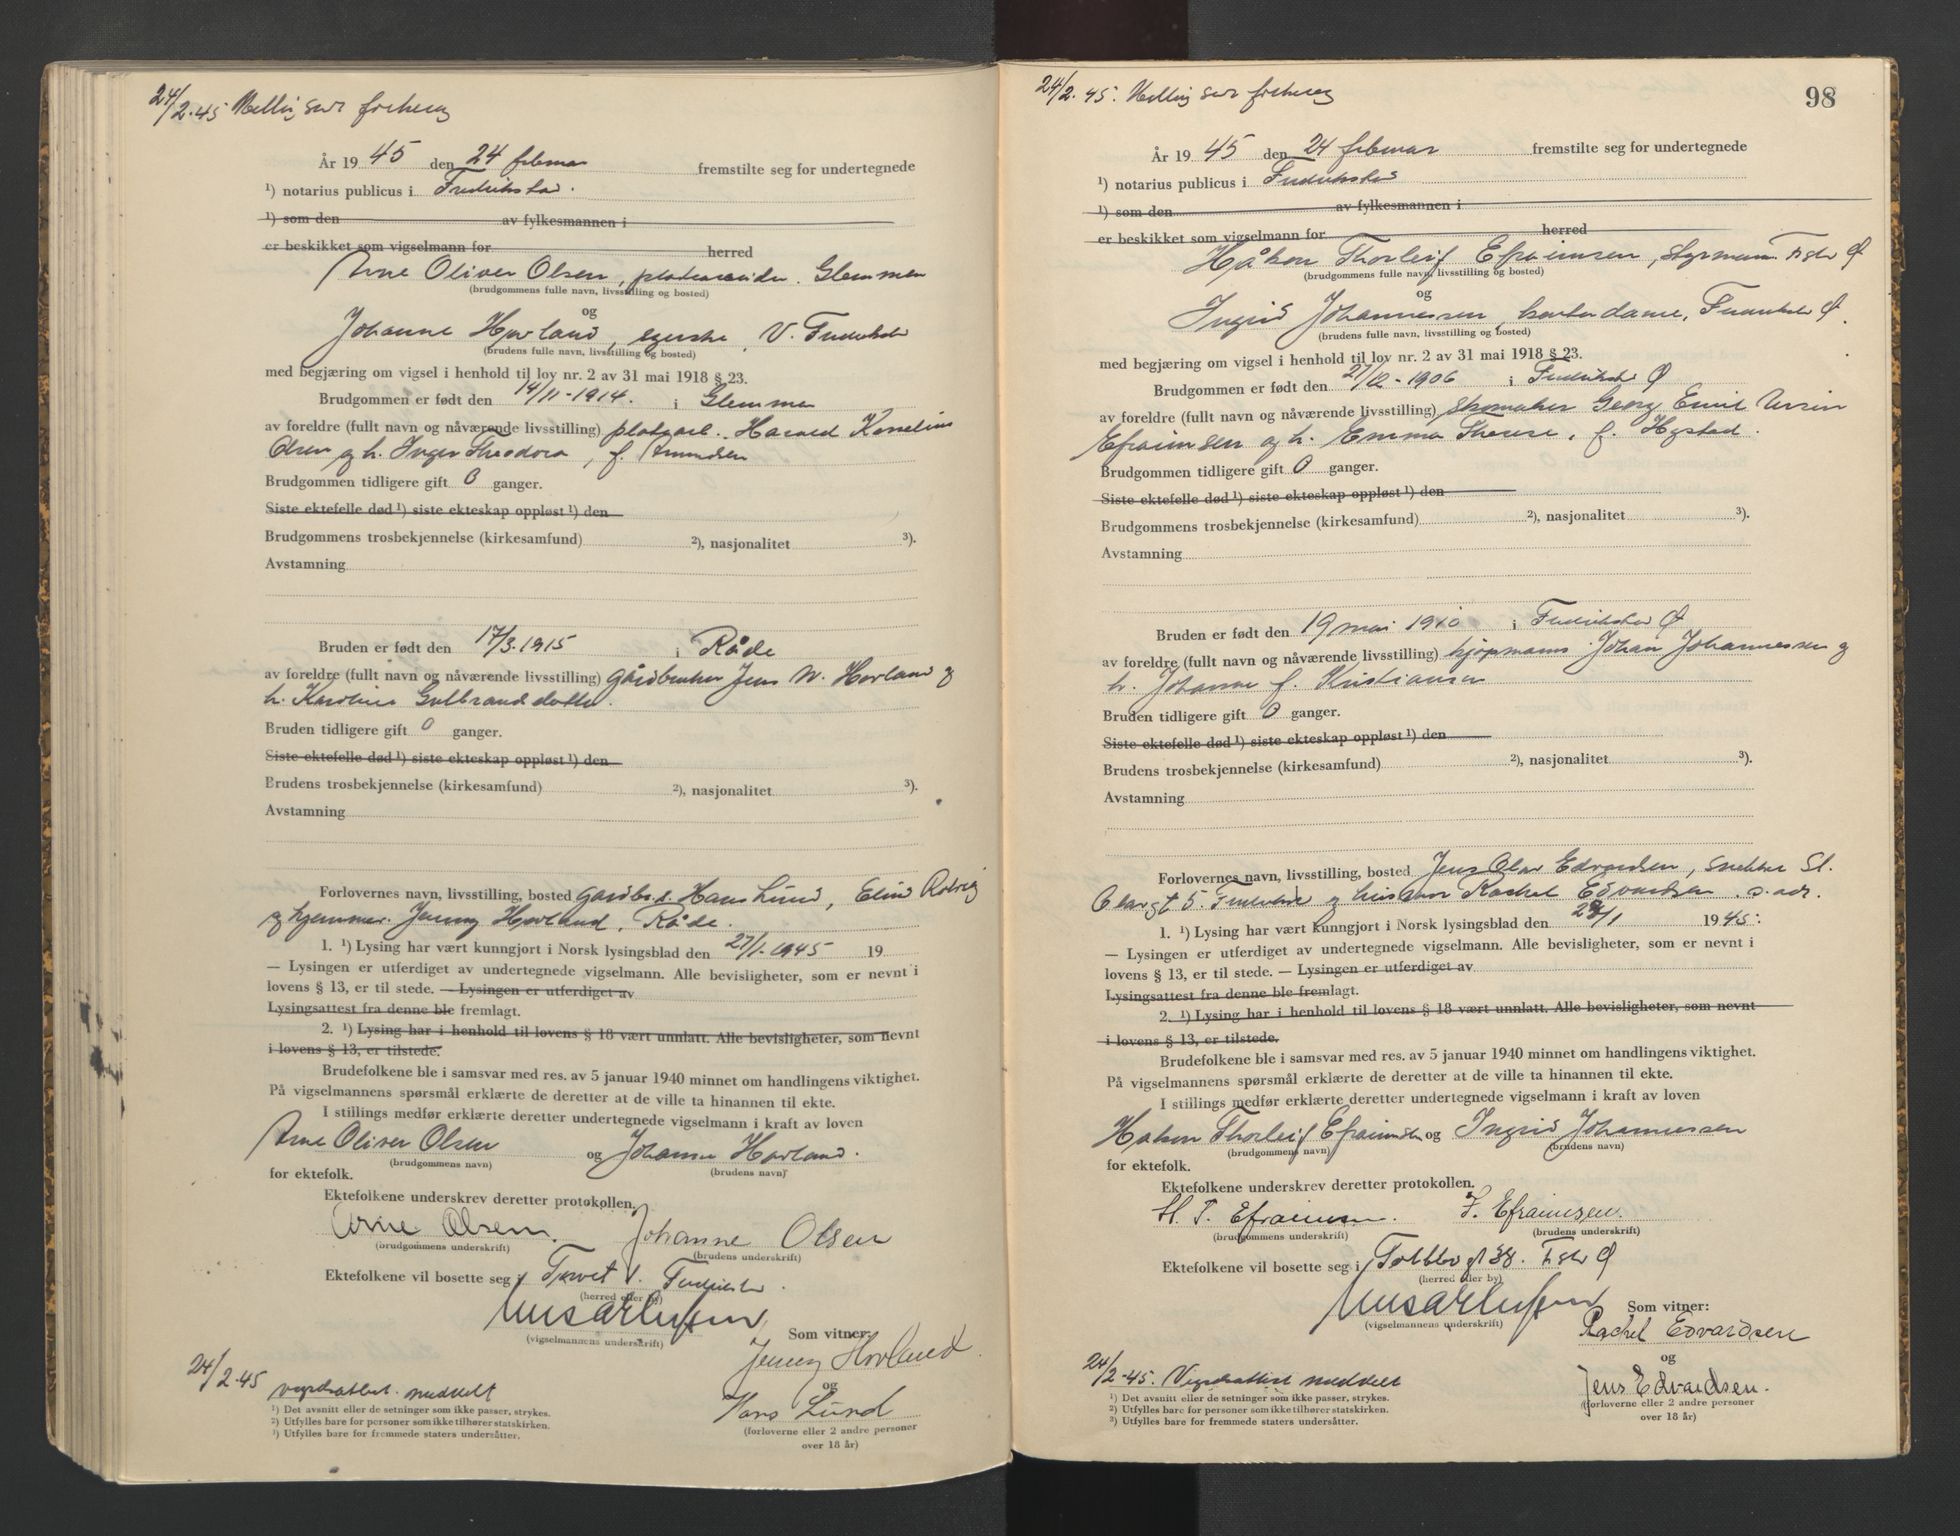 24/2-45
År 1945 den 24 februar fremstilte seg for undertegnede
¹) notarius publicus i Fredrikstad.
¹) som den av fylkesmannen i
er beskikket som vigselmann for herred
Arne Oliver Olsen, platearbeider. Glemmen
(brudgommens fulle navn, livsstilling og bosted)
og
Johanne Hovland, V. Fredrikstad
(brudens fulle navn, livsstilling og bosted)
med begjæring om vigsel i henhold til lov nr. 2 av 31 mai 1918 § 23.
Brudgommen er født den 14/11-1914. i Glemmen
av foreldre (fullt navn og nåværende livsstilling) platearb. Harald Kornelius
Olsen og h. Inger Theodora, f. Amundsen
Brudgommen tidligere gift 0 ganger.
Siste ektefelle død ¹) siste ekteskap oppløst ¹) den
Brudgommens trosbekjennelse (kirkesamfund) ²), nasjonalitet ³).
Avstamning
Bruden er født den 17/3-1915 i Råde
av foreldre (fullt navn og nåværende livsstilling) gårdbruker Jens W. Hovland og
h. Karoline Gulbrandsdatter.
Bruden tidligere gift 0 ganger.
Siste ektefelle død ¹) siste ekteskap oppløst ¹) den
Brudens trosbekjennelse (kirkesamfund) ²), nasjonalitet ³).
Avstamning
Forlovernes navn, livsstilling, bosted gårdbr.s. Hans Lund,
og hjemmev. Jenny Hovland, Råde.
1. ¹) Lysing har vært kunngjort i Norsk lysingsblad den 27/1-1945 19
— Lysingen er utferdiget av undertegnede vigselmann. Alle bevisligheter, som er nevnt i
lovens § 13, er til stede. — Lysingen er utferdiget av
Lysingsattest fra denne ble fremlagt.
2. ¹) Lysing har i henhold til lovens § 18 vært unnlatt. Alle bevisligheter, som nevnt
i lovens § 13, er tilstede.
Brudefolkene ble i samsvar med res. av 5 januar 1940 minnet om handlingens viktighet.
På vigselmannens spørsmål erklærte de deretter at de ville ta hinannen til ekte.
I stillings medfør erklærte deretter undertegnede vigselmann i kraft av loven
Arne Oliver Olsen og Johanne Hovland.
(brudgommens navn) (brudens navn)
for ektefolk.
Ektefolkene underskrev deretter protokollen.
Arne Olsen. Johanne Olsen
(brudgommens underskrift) (brudens underskrift)
Ektefolkene vil bosette seg i Torvet V. Fredrikstad.
(herred eller by)
(vigselmannens underskrift)
Som vitner:
Jenny Hovland.
og
24/2-45 vigselsattest meddelt
Hans Lund
¹) Det avsnitt eller de setninger som ikke passer, strykes.
²) Utfylles bare for personer som ikke tilhører statskirken.
³) Utfylles bare for fremmede staters undersåtter.
(forloverne eller 2 andre personer
over 18 år)
24/2-45.
98
År 1945 den 24 februar fremstilte seg for undertegnede
¹) notarius publicus i Fredrikstad
¹) som den av fylkesmannen i
er beskikket som vigselmann for herred
Håkon Thorleif Efraimsen, styrmann. F.stad Ø
(brudgommens fulle navn, livsstilling og bosted)
og
Ingrid Johannessen, kontordame, Fredrikstad Ø.
(brudens fulle navn, livsstilling og bosted)
med begjæring om vigsel i henhold til lov nr. 2 av 31 mai 1918 § 23.
Brudgommen er født den 27/12-1906 i Fredrikstad Ø
av foreldre (fullt navn og nåværende livsstilling) skomaker Georg Emil
Efraimsen og h. Emma Therese, f. Hystad.
Brudgommen tidligere gift 0 ganger.
Siste ektefelle død ¹) siste ekteskap oppløst ¹) den
Brudgommens trosbekjennelse (kirkesamfund) ²), nasjonalitet ³).
Avstamning
Bruden er født den 19 mai 1910 i Fredrikstad Ø
av foreldre (fullt navn og nåværende livsstilling) kjøpmann Johan Johannessen og
h. Johanne f. Kristiansen
Bruden tidligere gift 0 ganger.
Siste ektefelle død ¹) siste ekteskap oppløst ¹) den
Brudens trosbekjennelse (kirkesamfund) ²), nasjonalitet ³).
Avstamning
Forlovernes navn, livsstilling, bosted Jens Olav Edvardsen, snekker St.
Olavsgt 5. Fredrikstad og hustru Rachel Edvardsen. s. adr.
1. ¹) Lysing har vært kunngjort i Norsk lysingsblad den 1945.
— Lysingen er utferdiget av undertegnede vigselmann. Alle bevisligheter, som er nevnt i
lovens § 13, er til stede. — Lysingen er utferdiget av
Lysingsattest fra denne ble fremlagt.
2. ¹) Lysing har i henhold til lovens § 18 vært unnlatt. Alle bevisligheter, som nevnt
i lovens § 13, er tilstede.
Brudefolkene ble i samsvar med res. av 5 januar 1940 minnet om handlingens viktighet.
På vigselmannens spørsmål erklærte de deretter at de ville ta hinannen til ekte.
I stillings medfør erklærte deretter undertegnede vigselmann i kraft av loven
Håkon Thorleif Efraimsen og Ingrid Johannessen
(brudgommens navn) (brudens navn)
for ektefolk.
Ektefolkene underskrev deretter protokollen.
H. T. Efraimsen. I. Efraimsen.
(brudgommens underskrift) (brudens underskrift)
Ektefolkene vil bosette seg i Tollbodgt 38. F.stad Ø
(herred eller by)
(vigselmannens underskrift)
Som vitner:
Rachel Edvardsen
og
24/2-45. Vigselsattest meddelt
Jens Edvardsen.
¹) Det avsnitt eller de setninger som ikke passer, strykes.
²) Utfylles bare for personer som ikke tilhører statskirken.
³) Utfylles bare for fremmede staters undersåtter.
(forloverne eller 2 andre personer
over 18 år)